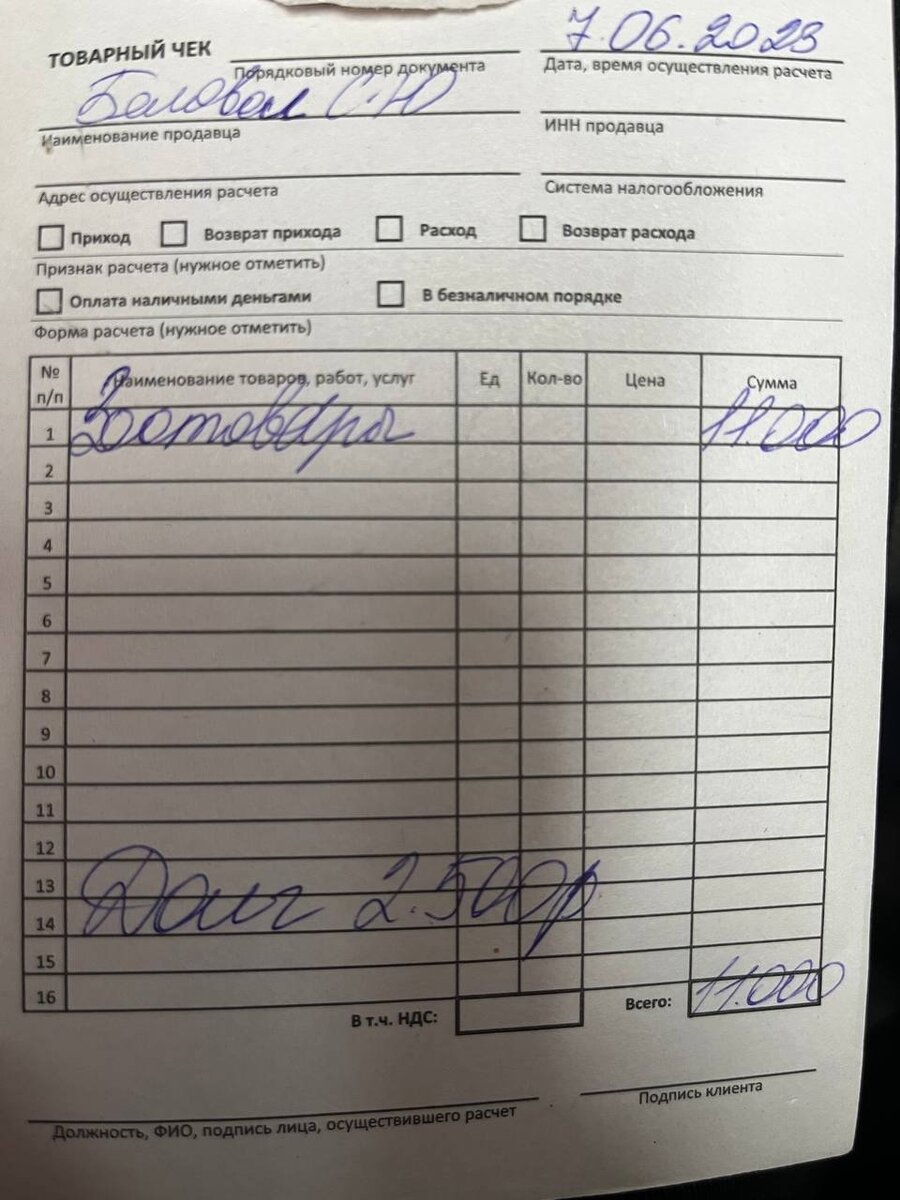 7.06.2023
ТОВАРНЫЙ ЧЕК
Порядковый номер документа
Дата, время осуществления расчета
Беловол С.Ю
Наименование продавца
ИНН продавца
Адрес осуществления расчета
Система налогообложения
Приход Возврат прихода Расход Возврат расхода
Признак расчета (нужное отметить)
Оплата наличными деньгами В безналичном порядке
Форма расчета (нужное отметить)
№ п/п Наименование товаров, работ, услуг Ед Кол-во Цена Сумма
1 Зоотовары 11.000
2
3
4
5
6
7
8
9
10
11
12
13
Долг 2.500р.
14
15
16
В т.ч. НДС: Всего: 11.000
Подпись клиента
Должность, ФИО, подпись лица, осуществившего расчет